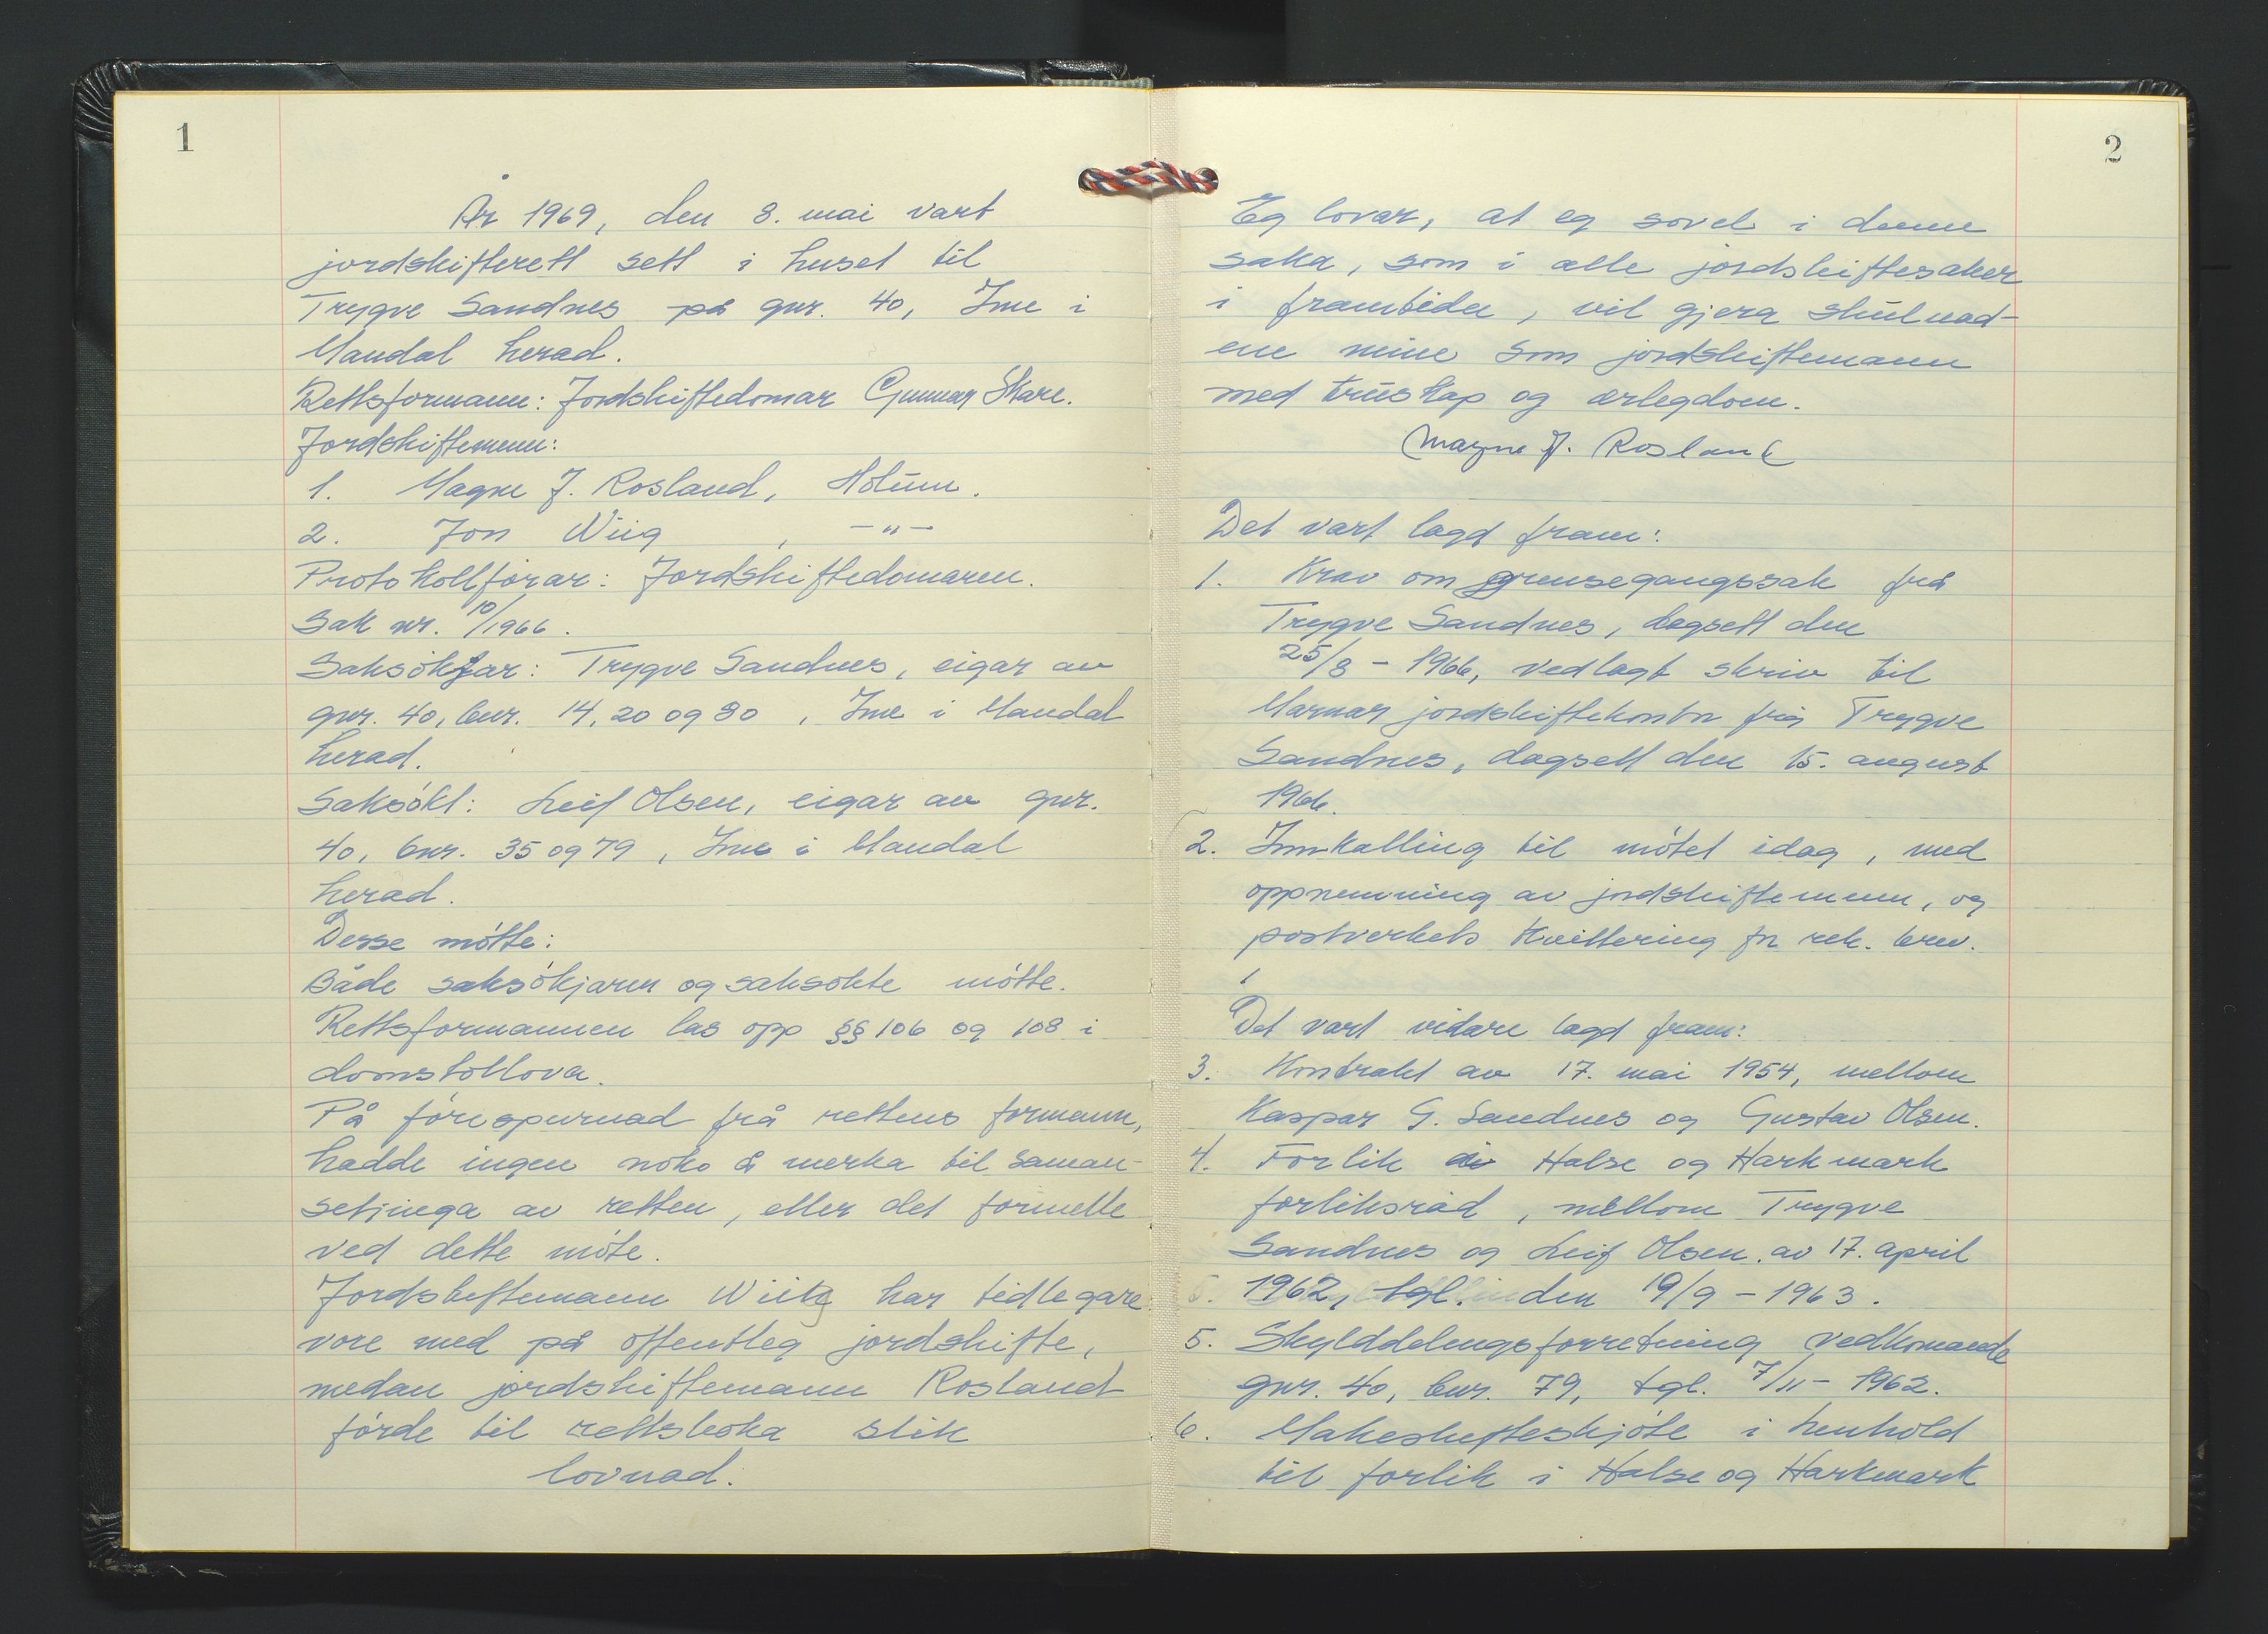 1
År 1969, den 8. mai vart
jordskifterett sett i huset til
Trygve Sandnes på gnr. 40, Ime i
Mandal herad.
Rettsformann: Jordskiftedomar Gunnar Skare.
Jordskiftemenn:
1. Magne J. Rosland, Holum.
2. Jon Wiig , -"-
Protokollförar: Jordskiftedomaren.
Sak nr. 10/1966.
Saksökjar: Trygve Sandnes, eigar av
gnr. 40, bnr. 14, 20 og 80, Ime i Mandal
herad.
Saksökt: Leif Olsen, eigar av gnr.
40, bnr. 35 og 79, Ime i Mandal
herad.
Desse mötte:
Både saksökjaren og saksökte mötte.
Rettsformannen las opp §§ 106 og 108 i
domstollova.
På förespurnad frå rettens formann,
hadde ingen noko å merka til saman-
setjinga av retten, eller det formelle
ved dette möte.
Jordskiftemann Wiig har tidlegare
vore med på offentleg jordskifte,
medan jordskiftemann Rosland
förde til rettsboka slik
lovnad:
2
Eg lovar, at eg sovel i denne
saka, som i alle jordskiftesaker
i framtida, vil gjera skulnad-
ene mine som jordskiftemann
med truskap og ærlegdom.
Magne J. Rosland
Det vart lagd fram:
1. Krav om grensegangssak frå
Trygve Sandnes, dagsett den
25/8 - 1966, vedlagt skriv til
Marnar jordskiftekontor frå Trygve
Sandnes, dagsett den 15. august
1966.
2. Innkalling til mötet idag, med
oppnemning av jordskiftemenn, og
postverkets kvittering for rek. brev.
Det vart vidare lagd fram:
3. Kontrakt av 17. mai 1954, mellom
Kaspar G. Sandnes og Gustav Olsen.
4. Forlik i Halse og Harkmark
forliksråd, mellom Trygve
Sandnes og Leif Olsen, av 17. april
1962, tgl. den 19/9 - 1963.
5. Skylddelingsforretning vedkomande
gnr. 40, bnr. 79, tgl. 7/11 - 1962.
6. Makeskifteskjöte i henhold
til forlik i Halse og Harkmark